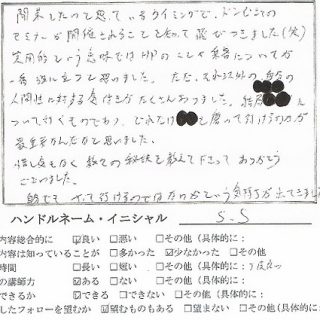 開業したいと思っているタイミングで、ドンピシャの
セミナーが開催されることを知って飛びつきました(笑)
実用的という意味ではHPのことや集客についてが
一番役に立つと思いました。ただ、それ以外の
人間性に対する気付きがたくさんありました。結局
ついて行くものであり、どれだけ を磨いて行けるかが
最重要なんだなと思いました。
惜し気もなく数々の秘訣を教えて下さって ありがとう
ございました。
でも やって行けるのではないかという気持ちが出てきました
ハンドルネーム・イニシャル S.S
内容総合的に ☑良い □悪い □その他(具体的に:
内容は知っていることが □多かった ☑少なかった □その他
時間 □長い □短い □その他(具体的に:
の講師力 ☑ある □ない □その他(具体的に:
できるか ☑できる □できない □その他(具体的に:
したフォローを望むか ☑望むものもある □望まない □その他(具体的に: